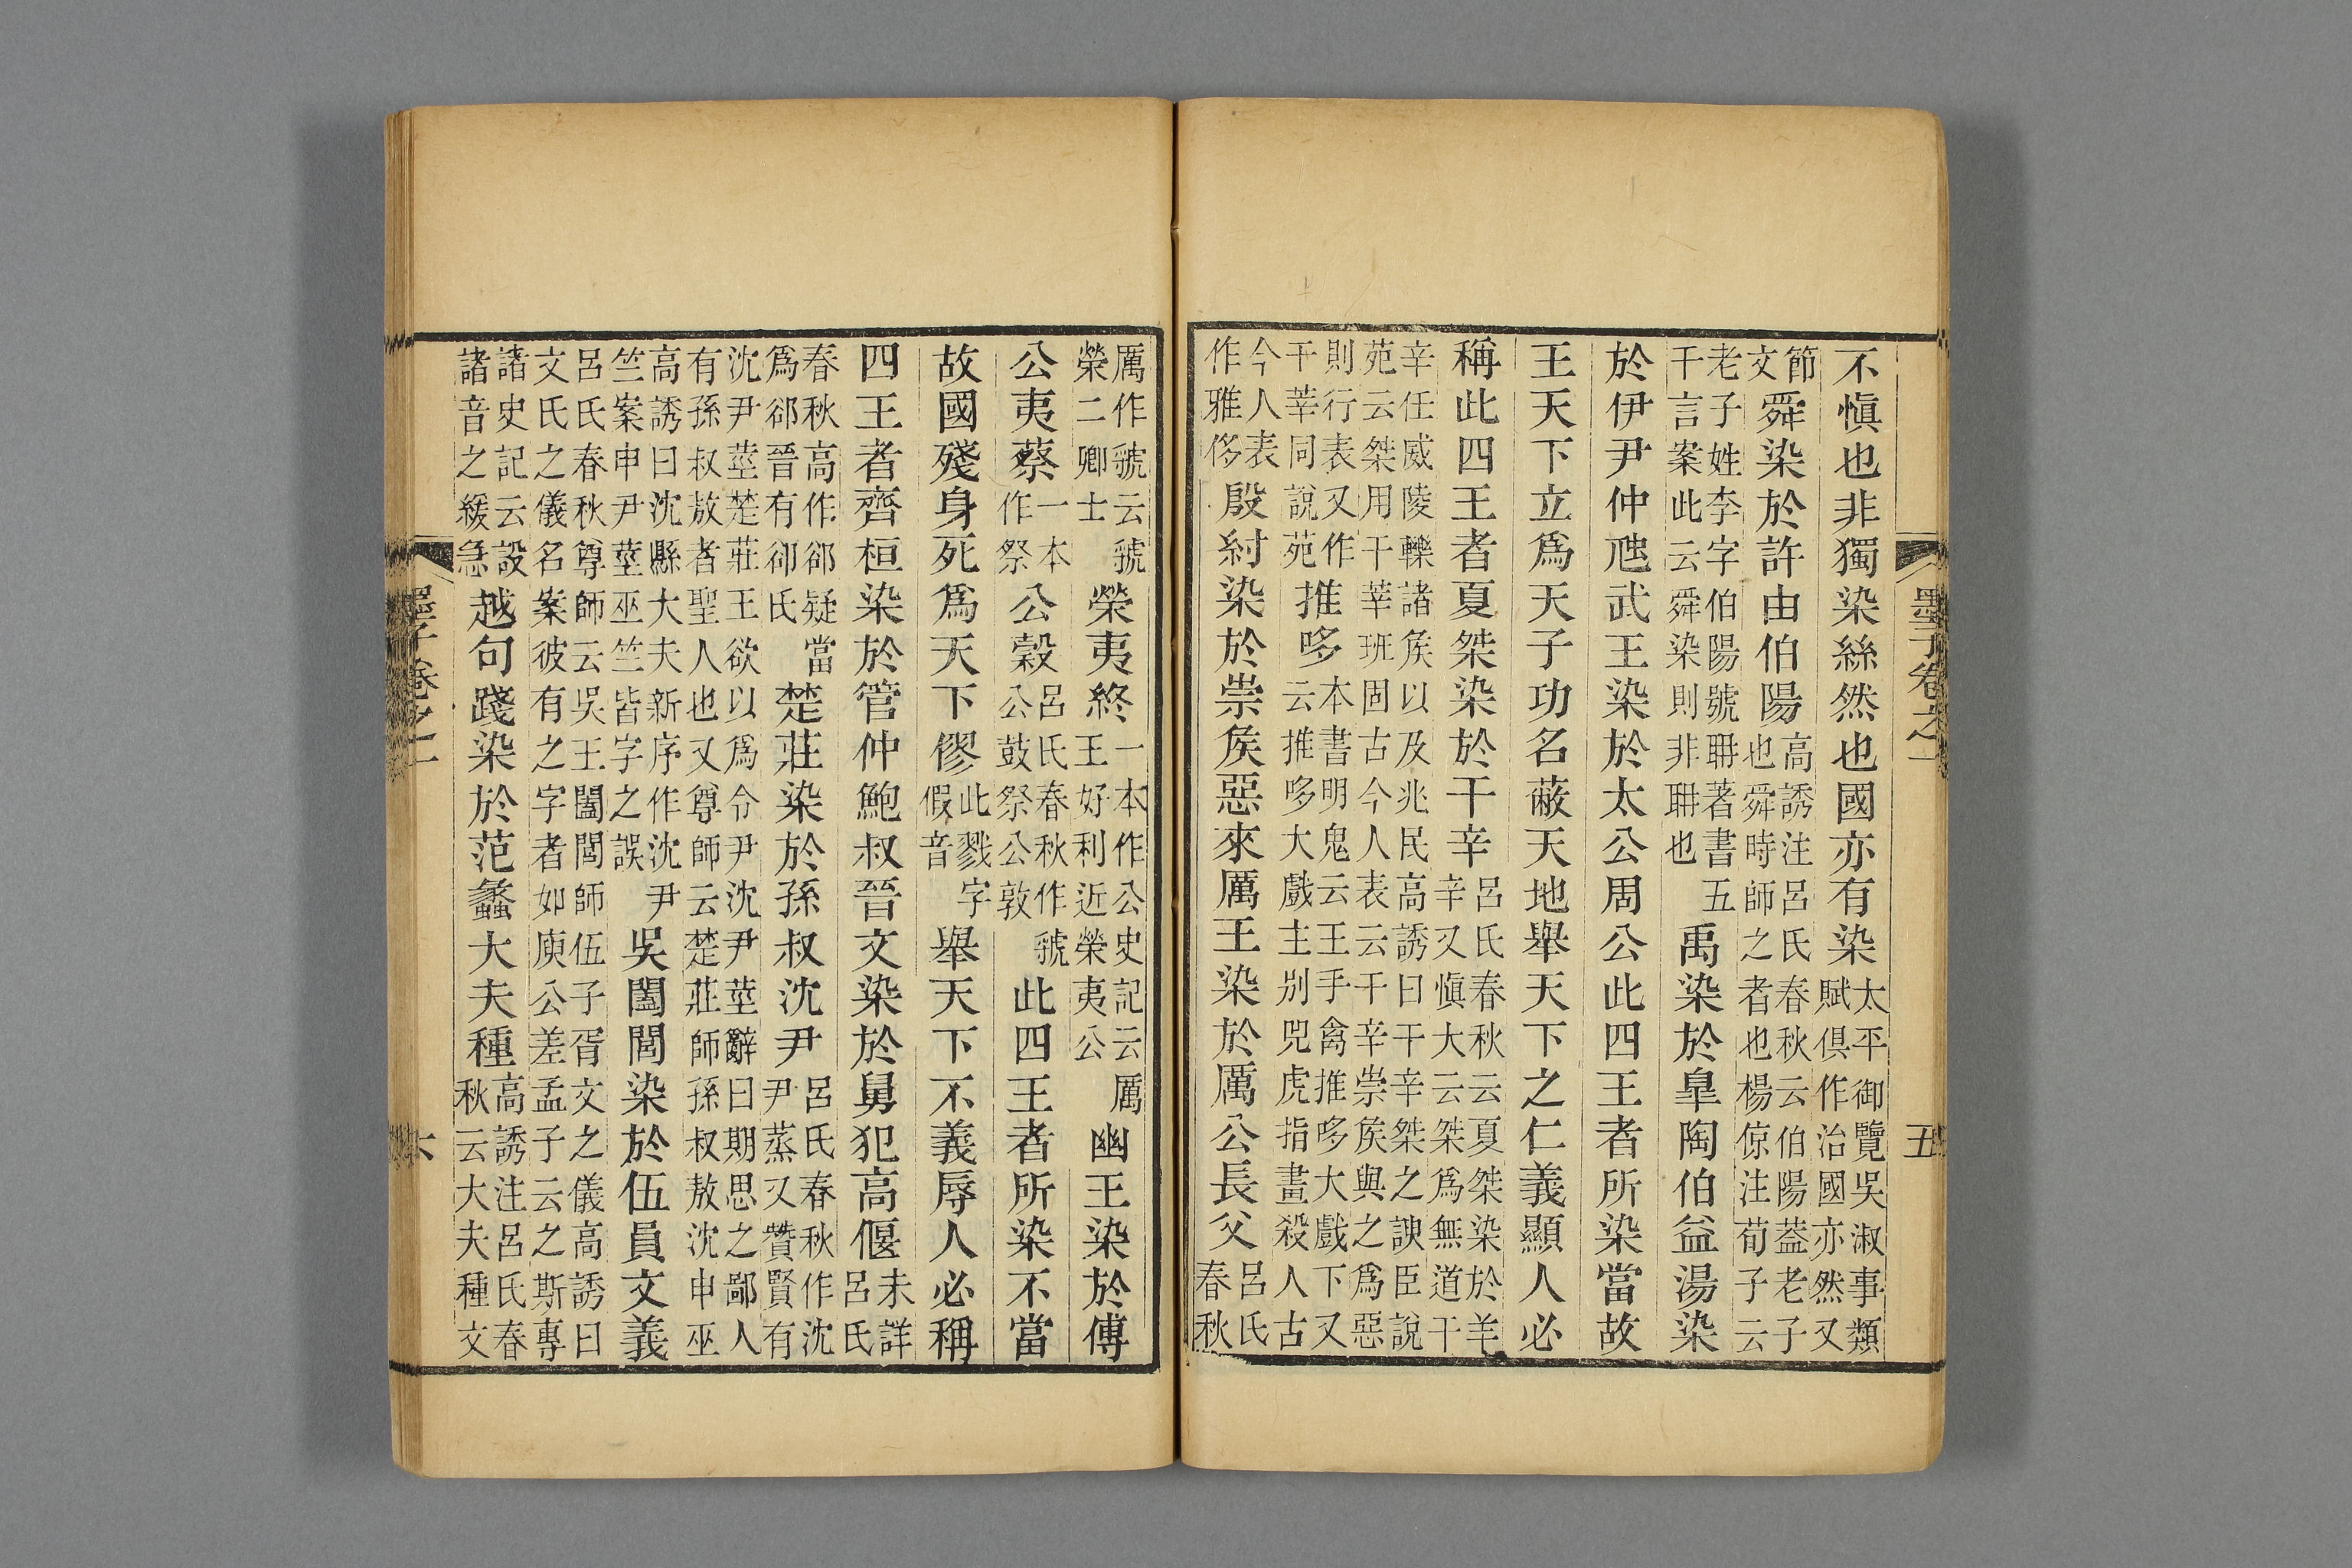 墨子卷之一 五
不慎也非獨染絲然也國亦有染太平御覽吳淑事類賦俱作治國亦然又
節文舜染於許由伯陽高誘注呂氏春秋云伯陽蓋老子也舜時師之者也楊倞注荀子云
老子姓李字伯陽號聃著書五千言案此云舜染則非聃也禹染於皐陶伯益湯染
於伊尹仲虺武王染於太公周公此四王者所染當故
王天下立爲天子功名蔽天地舉天下之仁義顯人必
稱此四王者夏桀染於干辛呂氏春秋云夏桀染於羊辛又慎大云桀爲無道干
辛任威陵轢諸矦以及兆民高誘曰干辛桀之諛臣說苑云桀用干莘班固古今人表云干辛崇矦與之爲惡
則行表又作干莘同說苑推哆本書明鬼云王手禽推哆大戲下又云推哆大戲主別兕虎指畫殺人古
今人表作雅侈殷紂染於崇矦惡來厲王染於厲公長父呂氏春秋
厲作虢云虢榮二卿士榮夷終一本作公史記云厲王好利近榮夷公幽王染於傅
公夷蔡一本作祭公穀呂氏春秋作虢公鼓祭公敦此四王者所染不當
故國殘身死爲天下僇此戮字假音舉天下不義辱人必稱
四王者齊桓染於管仲鮑叔晉文染於舅犯高偃未詳呂氏
春秋高作郤疑當爲郤晉有郤氏楚莊染於孫叔沈尹呂氏春秋作沈尹蒸又贊賢有
沈尹莖楚莊王欲以爲令尹沈尹莖辭曰期思之鄙人有孫叔敖者聖人也又尊師云楚莊師孫叔敖沈申巫
高誘曰沈縣大夫新序作沈尹竺案申尹莖巫竺皆字之誤吳闔閭染於伍員文義
呂氏春秋尊師云吳王闔閭師伍子胥文之儀高誘曰文氏之儀名案彼有之字者如庾公差孟子云之斯專
諸史記云設諸音之緩急越句踐染於范蠡大夫種高誘注呂氏春秋云大夫種文
墨子卷之一 六